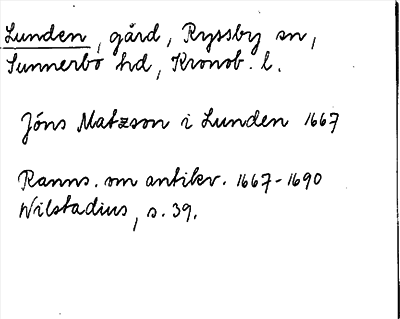 Lunden, gård, Ryssby sn,
Sunnerbo hd, Kronob. l.
Jöns Matzson i Lunden 1667
Ranns. om antikv. 1667-1690
Wilstadius, s. 39.